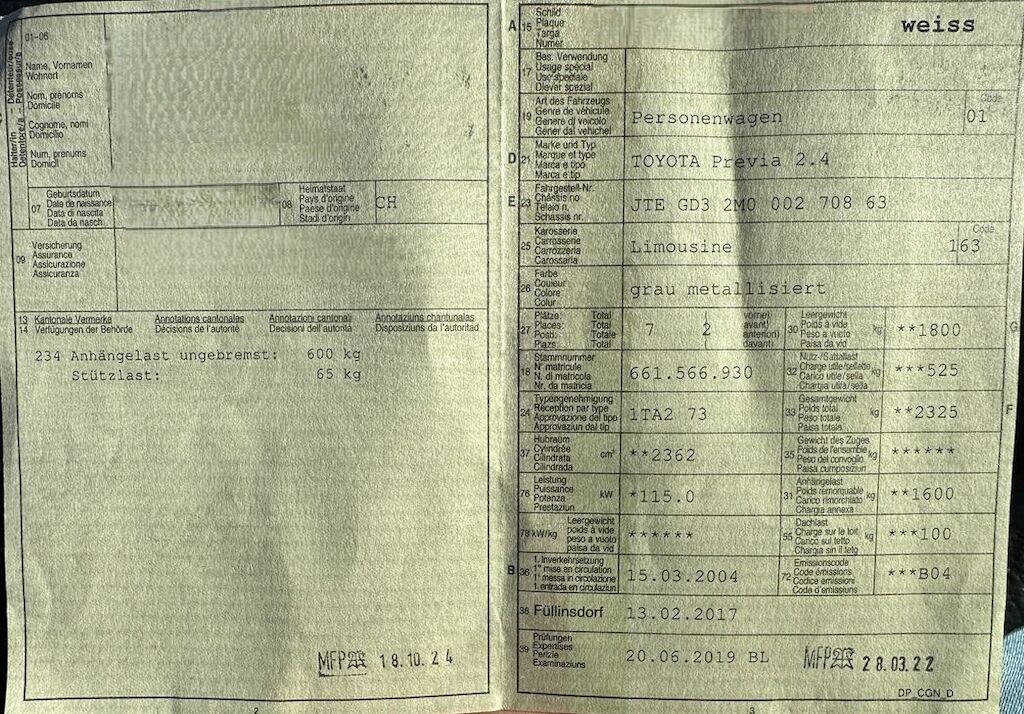 01-06
Halter/in - Détenteur/euse
Detentore/a - Possessur/a
Name, Vornamen
Wohnort
Nom, prénoms
Domicile
Cognome, nomi
Domicilio
Num, prenums
Domicil
07
Geburtsdatum
Date de naissance
Data di nascita
Data da nasch.
08
Heimatstaat
Pays d'origine
Paese d'origine
Stadi d'origin
CH
09
Versicherung
Assurance
Assicurazione
Assicuranza
13 Kantonale Vermerke Annotations cantonales Annotazioni cantonali Annotaziuns chantunalas
14 Verfügungen der Behörde Décisions de l'autorité Decisioni dell'autorità Disposiziuns da l'autoritad
234 Anhängelast ungebremst: 600 kg
Stützlast: 65 kg
MFP 18.10.24
2
A 15
Schild
Plaque
Targa
Numer
weiss
17
Bes. Verwendung
Usage spécial
Uso speciale
Diever spezial
19
Art des Fahrzeugs
Genre de véhicule
Genere di veicolo
Gener dal vehichel
Personenwagen
Code
01
D 21
Marke und Typ
Marque et type
Marca e tipo
Marca e tip
TOYOTA Previa 2.4
E 23
Fahrgestell-Nr.
Châssis no
Telaio n.
Schassis nr.
JTE GD3 2M0 002 708 63
25
Karosserie
Carrosserie
Carrozzeria
Carossaria
Limousine
Code
163
26
Farbe
Couleur
Colore
Colur
grau metallisiert
27
Plätze: Total
Places: Total
Posti: Totale
Plazs: Total
7 2
vorne)
avant)
anteriori)
davant)
30
Leergewicht
Poids à vide
Peso a vuoto
Paisa da vid
kg
**1800
G
18
Stammnummer
N° matricule
N. di matricola
Nr. da matricla
661.566.930
32
Nutz-/Sattellast
Charge utile/sellette
Carico utile/sella
Chargia utila/sella
kg
***525
24
Typengenehmigung
Réception par type
Approvazione del tipo
Approvaziun dal tip
1TA2 73
33
Gesamtgewicht
Poids total
Peso totale
Paisa totala
kg
**2325
F
37
Hubraum
Cylindrée
Cilindrata
Cilindrada
cm³
**2362
35
Gewicht des Zuges
Poids de l'ensemble
Peso del convoglio
Paisa cumposiziun
kg
******
76
Leistung
Puissance
Potenza
Prestaziun
kW
*115.0
31
Anhängelast
Poids remorquable
Carico rimorchiato
Chargia annexa
kg
**1600
78 kW/kg
Leergewicht
poids à vide
peso a vuoto
paisa da vid
******
55
Dachlast
Charge sur le toit
Carico sul tetto
Chargia sin il tetg
kg
***100
B 36
1. Inverkehrsetzung
1re mise en circulation
1a messa in circolazione
1. entrada en circulaziun
15.03.2004
72
Emissionscode
Code émissions
Codice emissioni
Code d'emissiuns
***B04
38 Füllinsdorf 13.02.2017
39
Prüfungen
Expertises
Perizie
Examinaziuns
20.06.2019 BL
MFP 28.03.22
DP_CGN_D
3